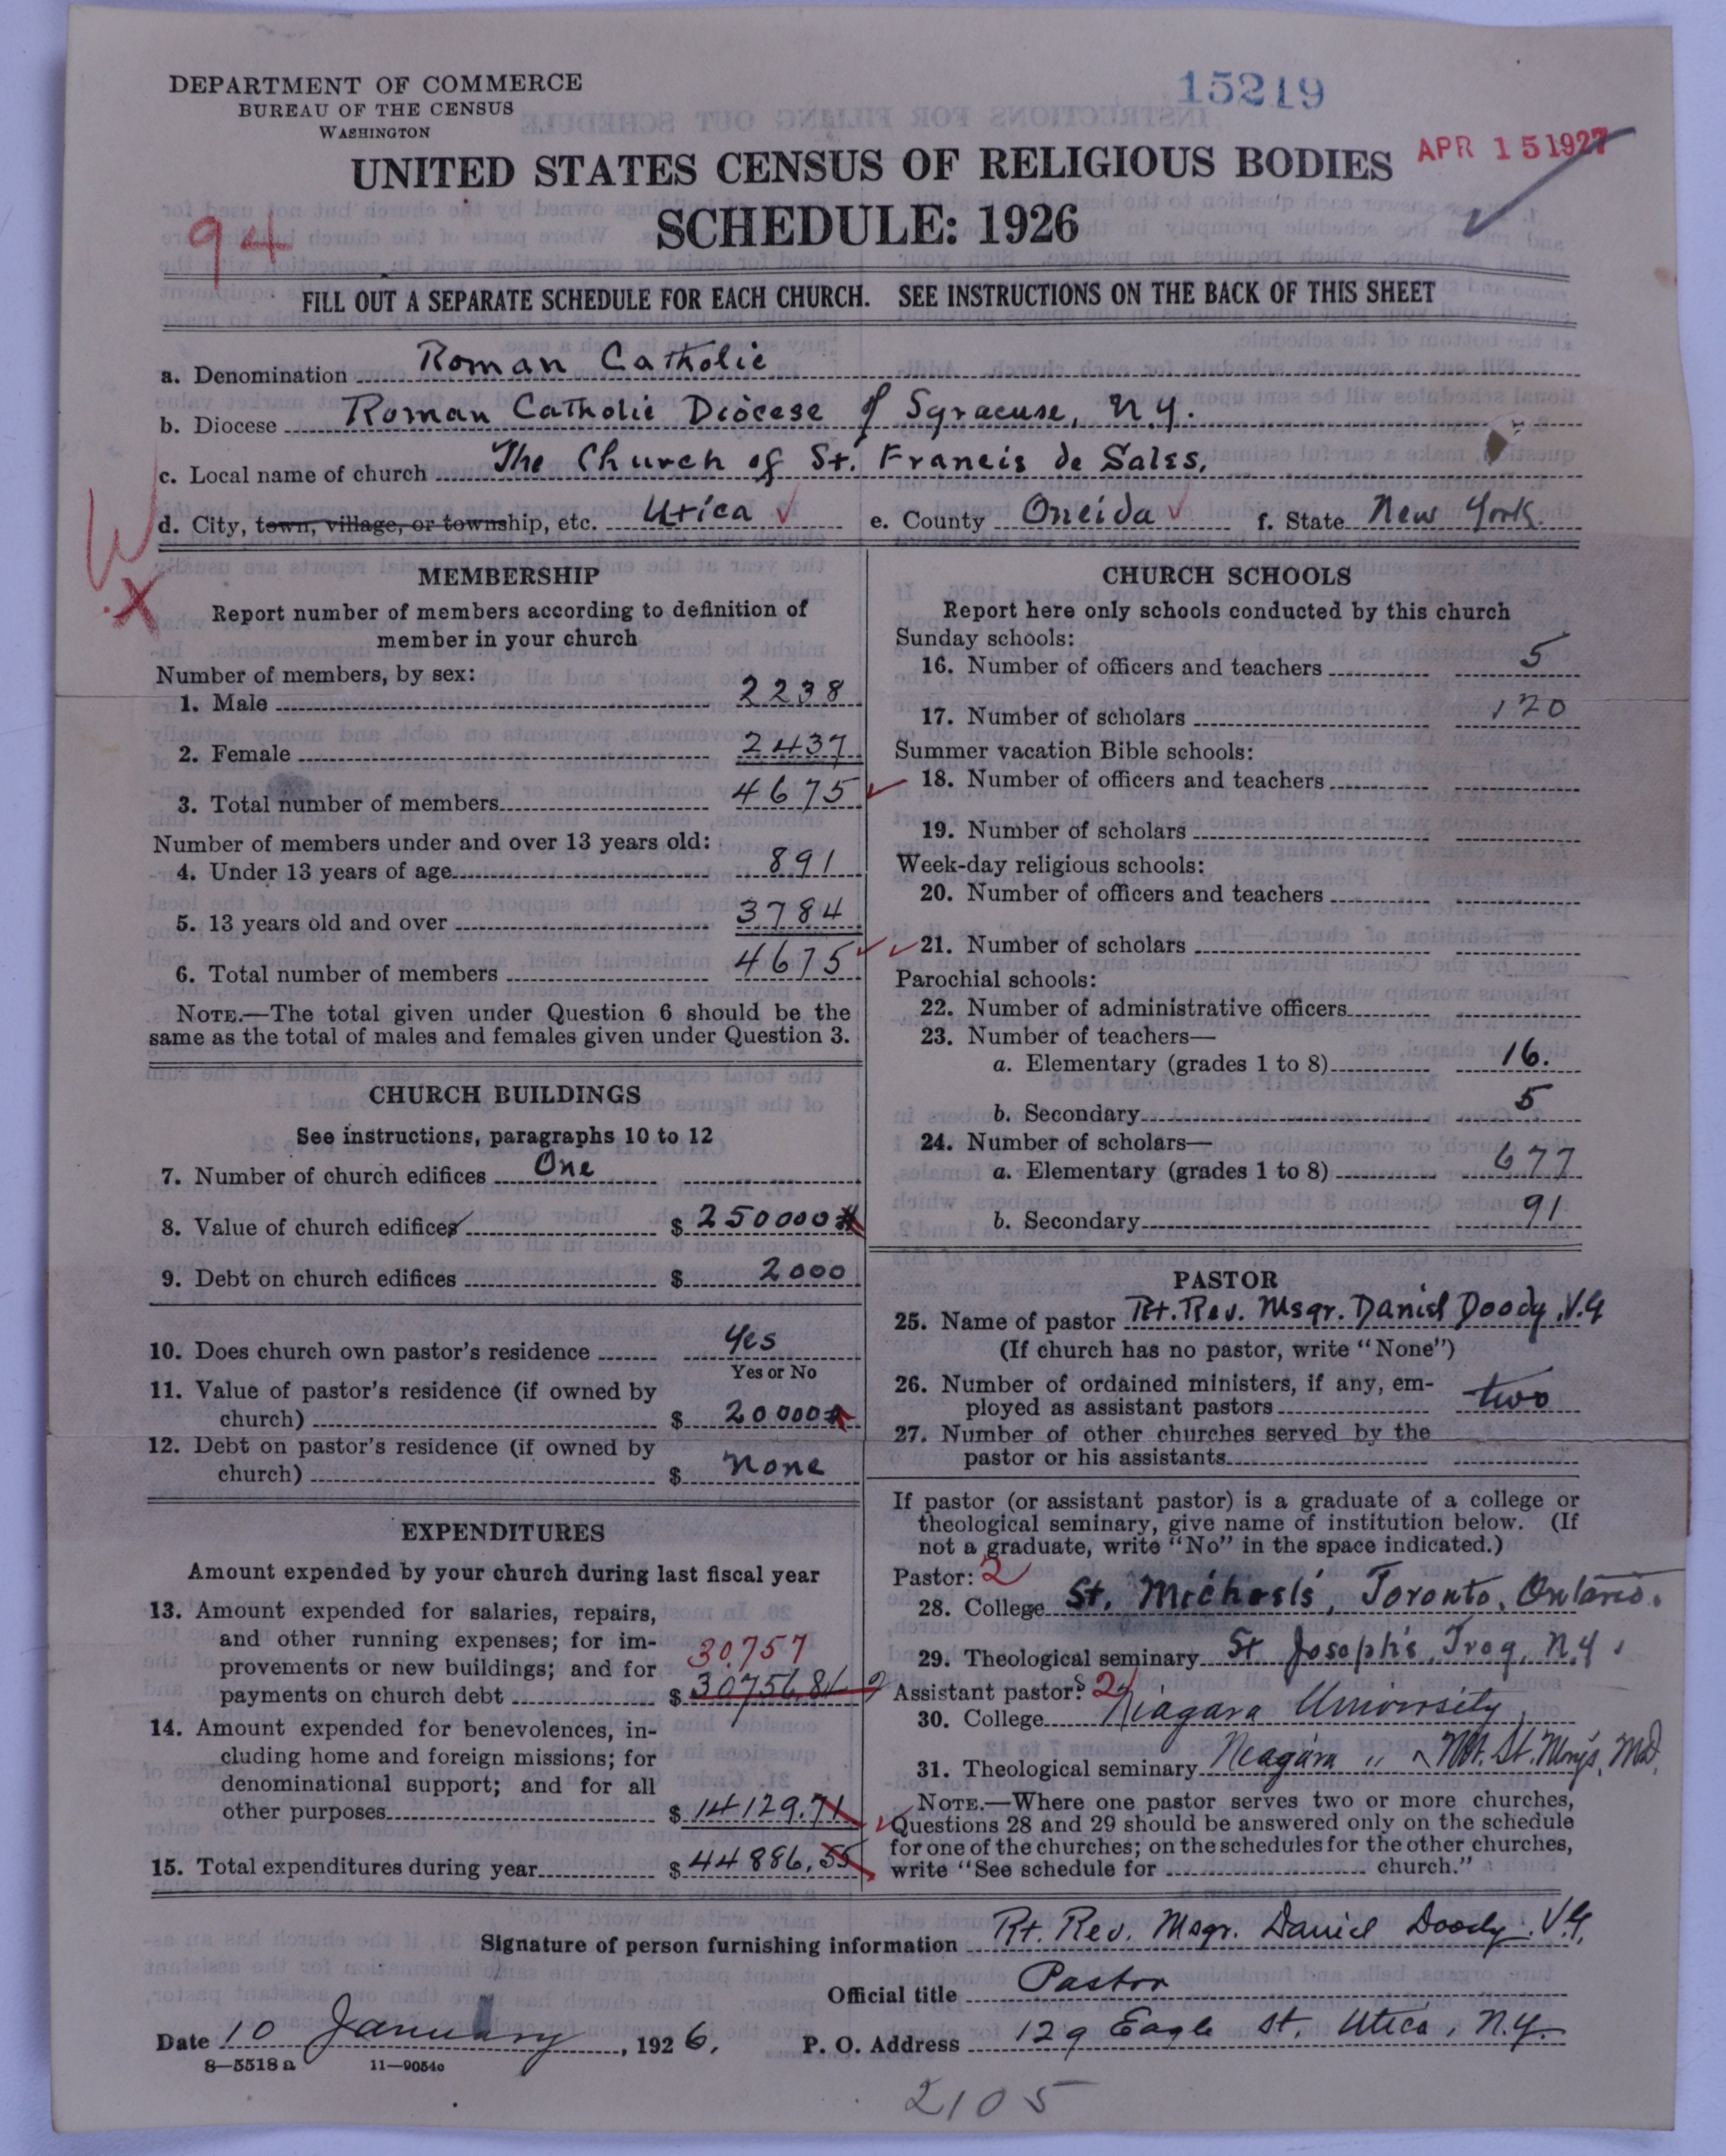 15219
DEPARTMENT OF COMMERCE
BUREAU OF THE CENSUS
WASHINGTON
APR 15 1927
UNITED STATES CENSUS OF RELIGIOUS BODIES
SCHEDULE: 1926
94
FILL OUT A SEPARATE SCHEDULE FOR EACH CHURCH. SEE INSTRUCTIONS ON THE BACK OF THIS SHEET
a. Denomination Roman Catholic
b. Diocese Roman Catholic Diocese of Syracuse, N.Y.
c. Local name of church The Church of St. Francis de Sales,
d. City, town, village, or township, etc. Utica e. County Oneida f. State New York.
W
X
MEMBERSHIP
Report number of members according to definition of
member in your church
Number of members, by sex:
1. Male 2238
2. Female 2437
3. Total number of members 4675
Number of members under and over 13 years old:
4. Under 13 years of age 891
5. 13 years old and over 3784
6. Total number of members 4675
NOTE.—The total given under Question 6 should be the
same as the total of males and females given under Question 3.
CHURCH BUILDINGS
See instructions, paragraphs 10 to 12
7. Number of church edifices One
8. Value of church edifices $ 250000
9. Debt on church edifices $ 2000
10. Does church own pastor's residence Yes
Yes or No
11. Value of pastor's residence (if owned by
church) $ 20000
12. Debt on pastor's residence (if owned by
church) $ none
EXPENDITURES
Amount expended by your church during last fiscal year
13. Amount expended for salaries, repairs,
and other running expenses; for im-
provements or new buildings; and for 30757
payments on church debt $ 30756.84
14. Amount expended for benevolences, in-
cluding home and foreign missions; for
denominational support; and for all
other purposes $ 14129.71
15. Total expenditures during year $ 44886.55
CHURCH SCHOOLS
Report here only schools conducted by this church
Sunday schools:
16. Number of officers and teachers 5
17. Number of scholars 120
Summer vacation Bible schools:
18. Number of officers and teachers
19. Number of scholars
Week-day religious schools:
20. Number of officers and teachers
21. Number of scholars
Parochial schools:
22. Number of administrative officers
23. Number of teachers—
a. Elementary (grades 1 to 8) 16.
b. Secondary 5
24. Number of scholars—
a. Elementary (grades 1 to 8) 677
b. Secondary 91
PASTOR
25. Name of pastor Rt. Rev. Msgr. Daniel Doody, V.G
(If church has no pastor, write "None")
26. Number of ordained ministers, if any, em-
ployed as assistant pastors two
27. Number of other churches served by the
pastor or his assistants
If pastor (or assistant pastor) is a graduate of a college or
theological seminary, give name of institution below. (If
not a graduate, write "No" in the space indicated.)
Pastor: 2
28. College St. Michael's, Toronto, Ontario.
29. Theological seminary St Joseph's, Troy, N.Y.
Assistant pastors: 2
30. College Niagara University,
31. Theological seminary Niagara " Mt. St. Mary's, Md.
NOTE.—Where one pastor serves two or more churches,
Questions 28 and 29 should be answered only on the schedule
for one of the churches; on the schedules for the other churches,
write "See schedule for church."
Signature of person furnishing information Rt. Rev. Msgr. Daniel Doody. V.G.
Official title Pastor
Date 10 January, 1926. P. O. Address 129 Eagle St. Utica, N.Y.
8—5518a 11—9054c
2105